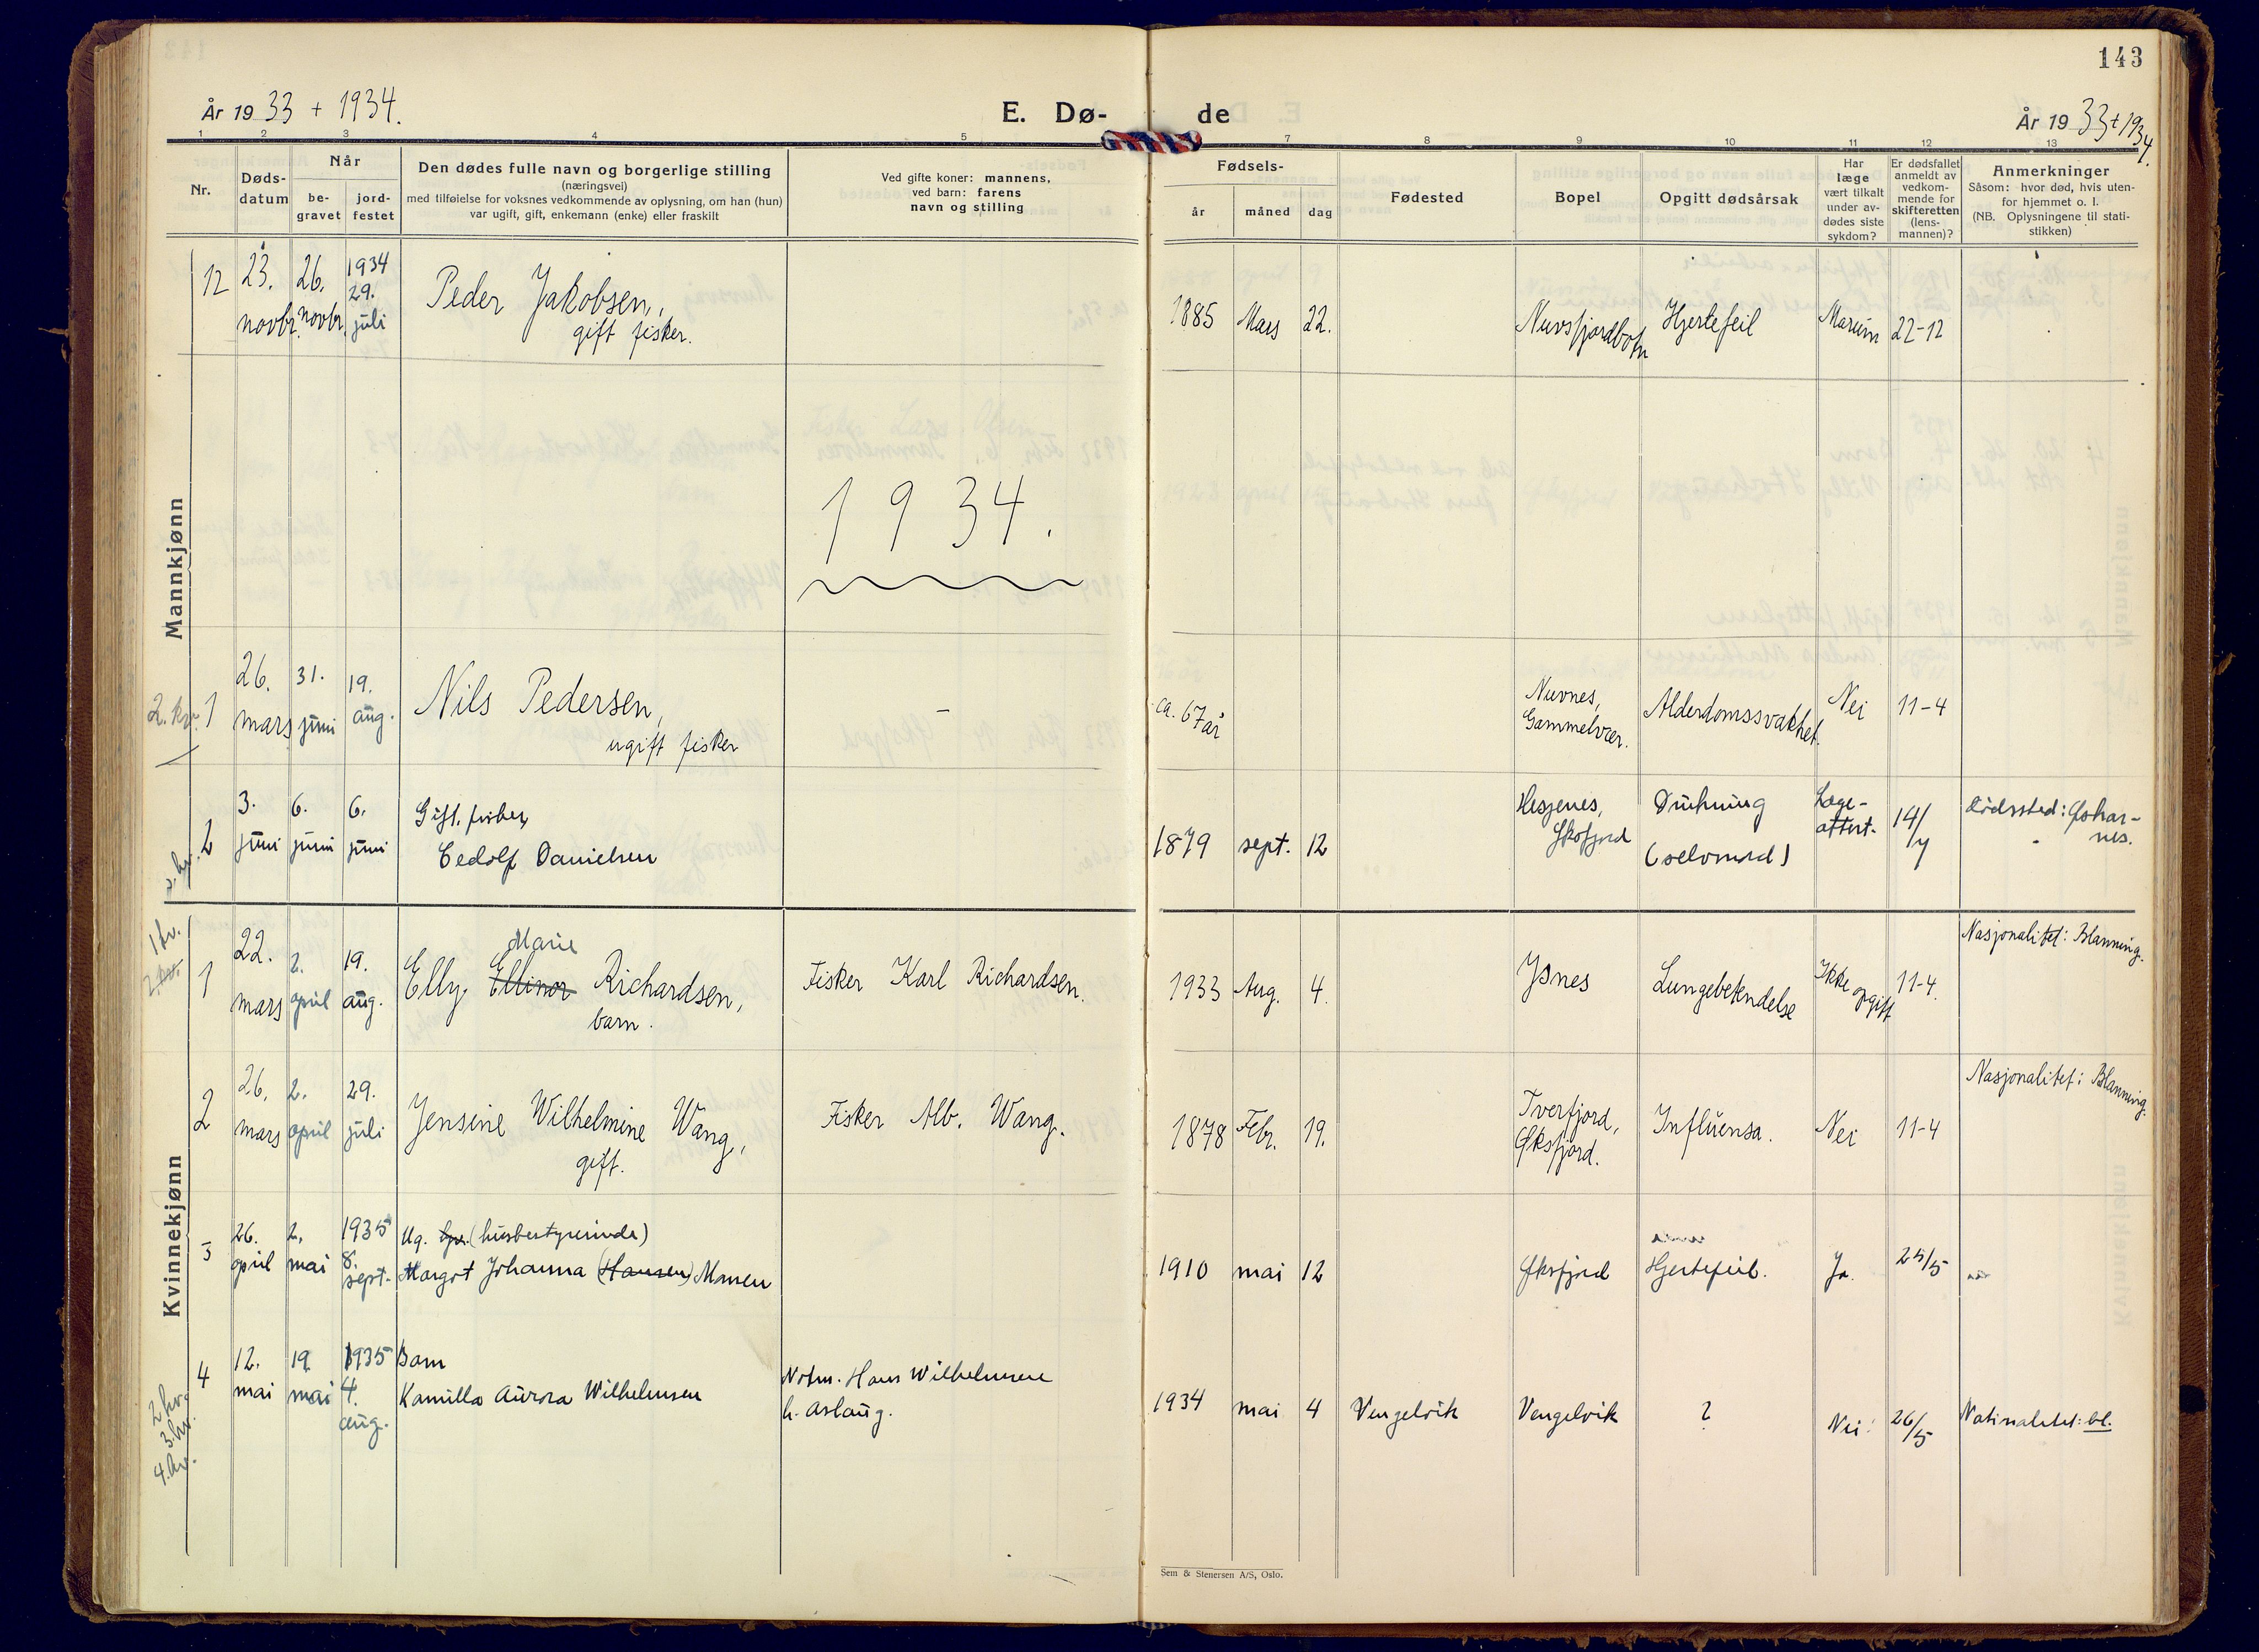 143
År 1933 + 1934.
E. Dø-
de
År 1933 + 1934.
1 2 3 4 5 7 8 9 10 11 12 13
Nr.
Døds-
datum
Når
be-
gravet
jord-
festet
Den dødes fulle navn og borgerlige stilling
(næringsvei)
med tilføielse for voksnes vedkommende av oplysning, om han (hun)
var ugift, gift, enkemann (enke) eller fraskilt
Ved gifte koner: mannens,
ved barn: farens
navn og stilling
Fødsels-
år
måned
dag
Fødested
Bopel
Opgitt dødsårsak
Har
læge
vært tilkalt
under av-
dødes siste
sykdom?
Er dødsfallet
anmeldt av
vedkom-
mende for
skifteretten
(lens-
mannen)?
Anmerkninger
Såsom: hvor død, hvis uten-
for hjemmet o. l.
(NB. Oplysningene til stati-
stikken)
Mannkjønn
12
23.
novbr.
26.
novbr.
1934
29.
juli
Peder Jakobsen,
gift fisker.
1885 Mars 22.
Nuvsfjordbotn
Hjertefeil
Marum
22-12
1934.
2. kv.
1
26.
mars
31.
juni
19.
aug.
Nils Pedersen,
ugift fisker
-
ca. 67 år
Nuvnes,
Gammelvær.
Alderdomssvakhet.
Nei
11-4
2
3.
juni
6.
juni
6.
juni
Gift. fisker
Edolf Danielsen
1879 sept. 12
Hesjenes,
Øksfjord
Drukning
(selvmord)
Læge-
attest.
14/
7
Dødssted:
nes.
Kvinnekjønn
1 kv.
2. kv.
1
22.
mars
2.
april
19.
aug.
Marie
Elly Ellinor Richardsen,
barn.
Fisker Karl Richardsen.
1933 Aug. 4.
Isnes
Lungebetendelse
Ikke opgitt
11-4.
Nasjonalitet: Blanning.
2
26.
mars
2.
april
29.
juli
Jensine Wilhelmine Wang,
gift.
Fisker Alb. Wang.
1878 Febr. 19.
Tverfjord,
Øksfjord.
Influensa.
Nei
11-4
Nasjonalitet: Blanning.
3
26.
april
2.
mai
1935
8.
sept.
Ug. (husbestyrerinde)
Margot Johanna (Hansen) Monsen
1910 mai 12
Øksfjord
Hjertefeil.
Ja.
25/5
4
12.
mai
19
mai
1935
4.
aug.
Barn
Kamilla Aurora Wilhelmsen
Hans Wilhelmsen
h. Aslaug.
1934 mai 4
Vengelvik
Vengelvik
?
Nei
26/5
Nationalitet: bl.
2 kv.
3. kv.
4. kv.
Sem & Stenersen A/S, Oslo.